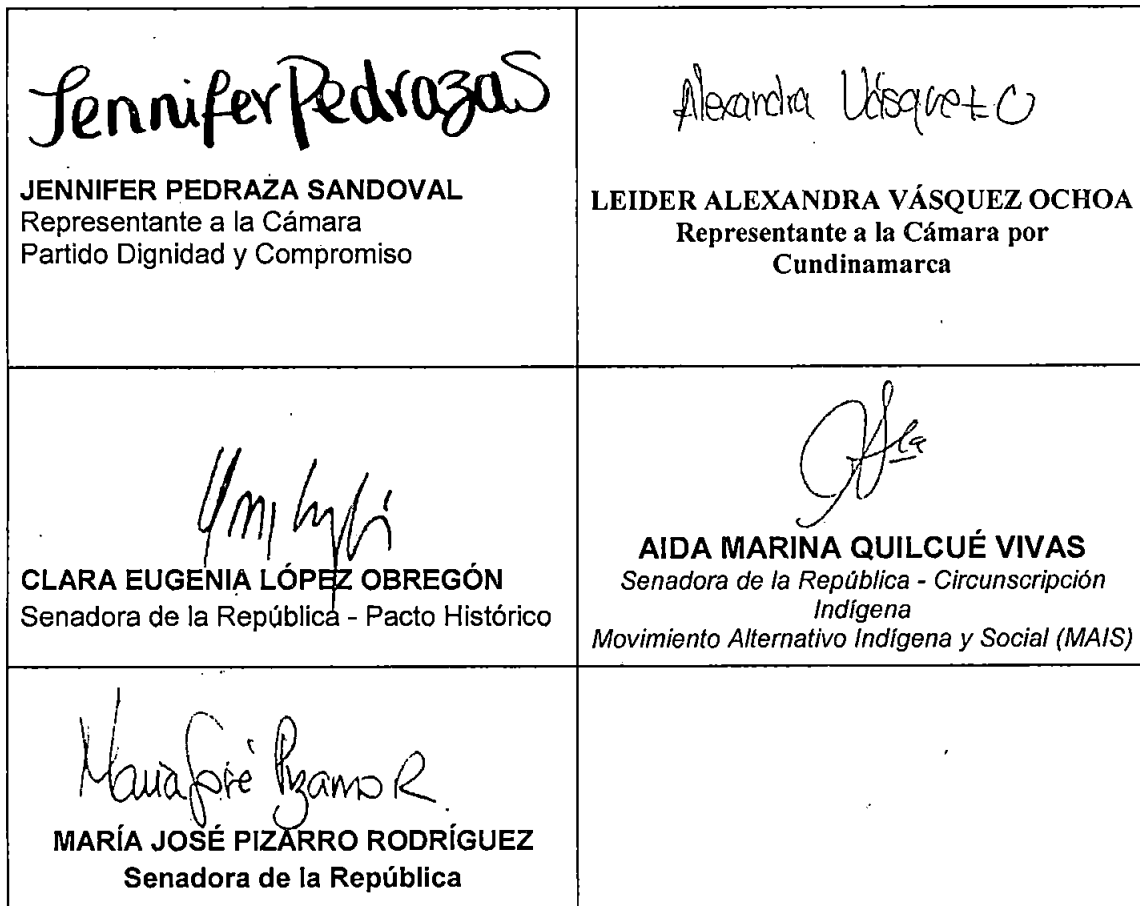 Jennifer Pedraza S
JENNIFER PEDRAZA SANDOVAL
Representante a la Cámara
Partido Dignidad y Compromiso
Alexandra Vásquez O
LEIDER ALEXANDRA VÁSQUEZ OCHOA
Representante a la Cámara por
Cundinamarca
CLARA EUGENIA LÓPEZ OBREGÓN
Senadora de la República - Pacto Histórico
AIDA MARINA QUILCUÉ VIVAS
Senadora de la República - Circunscripción
Indígena
Movimiento Alternativo Indígena y Social (MAIS)
María José Pizarro R.
MARÍA JOSÉ PIZARRO RODRÍGUEZ
Senadora de la República